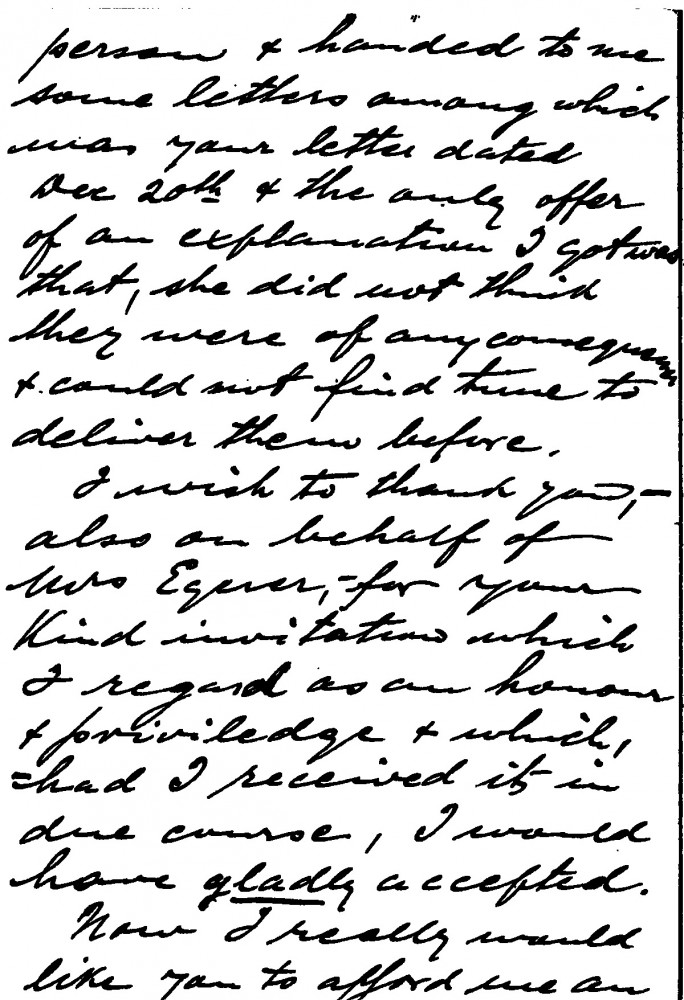 person & handed to me
some letters among which
was your letter dated
Dec 20th & the only offer
of an explanation I got was
that, she did not think
they were of any consequence
& could not find time to
deliver them before.
I wish to thank you,-
also on behalf of
Mrs Egerer,-for your
Kind invitation which
I regard as an honour
& priviledge & which,
=had I received it in
due course, I would
have gladly accepted.
Now I really would
like you to afford me an